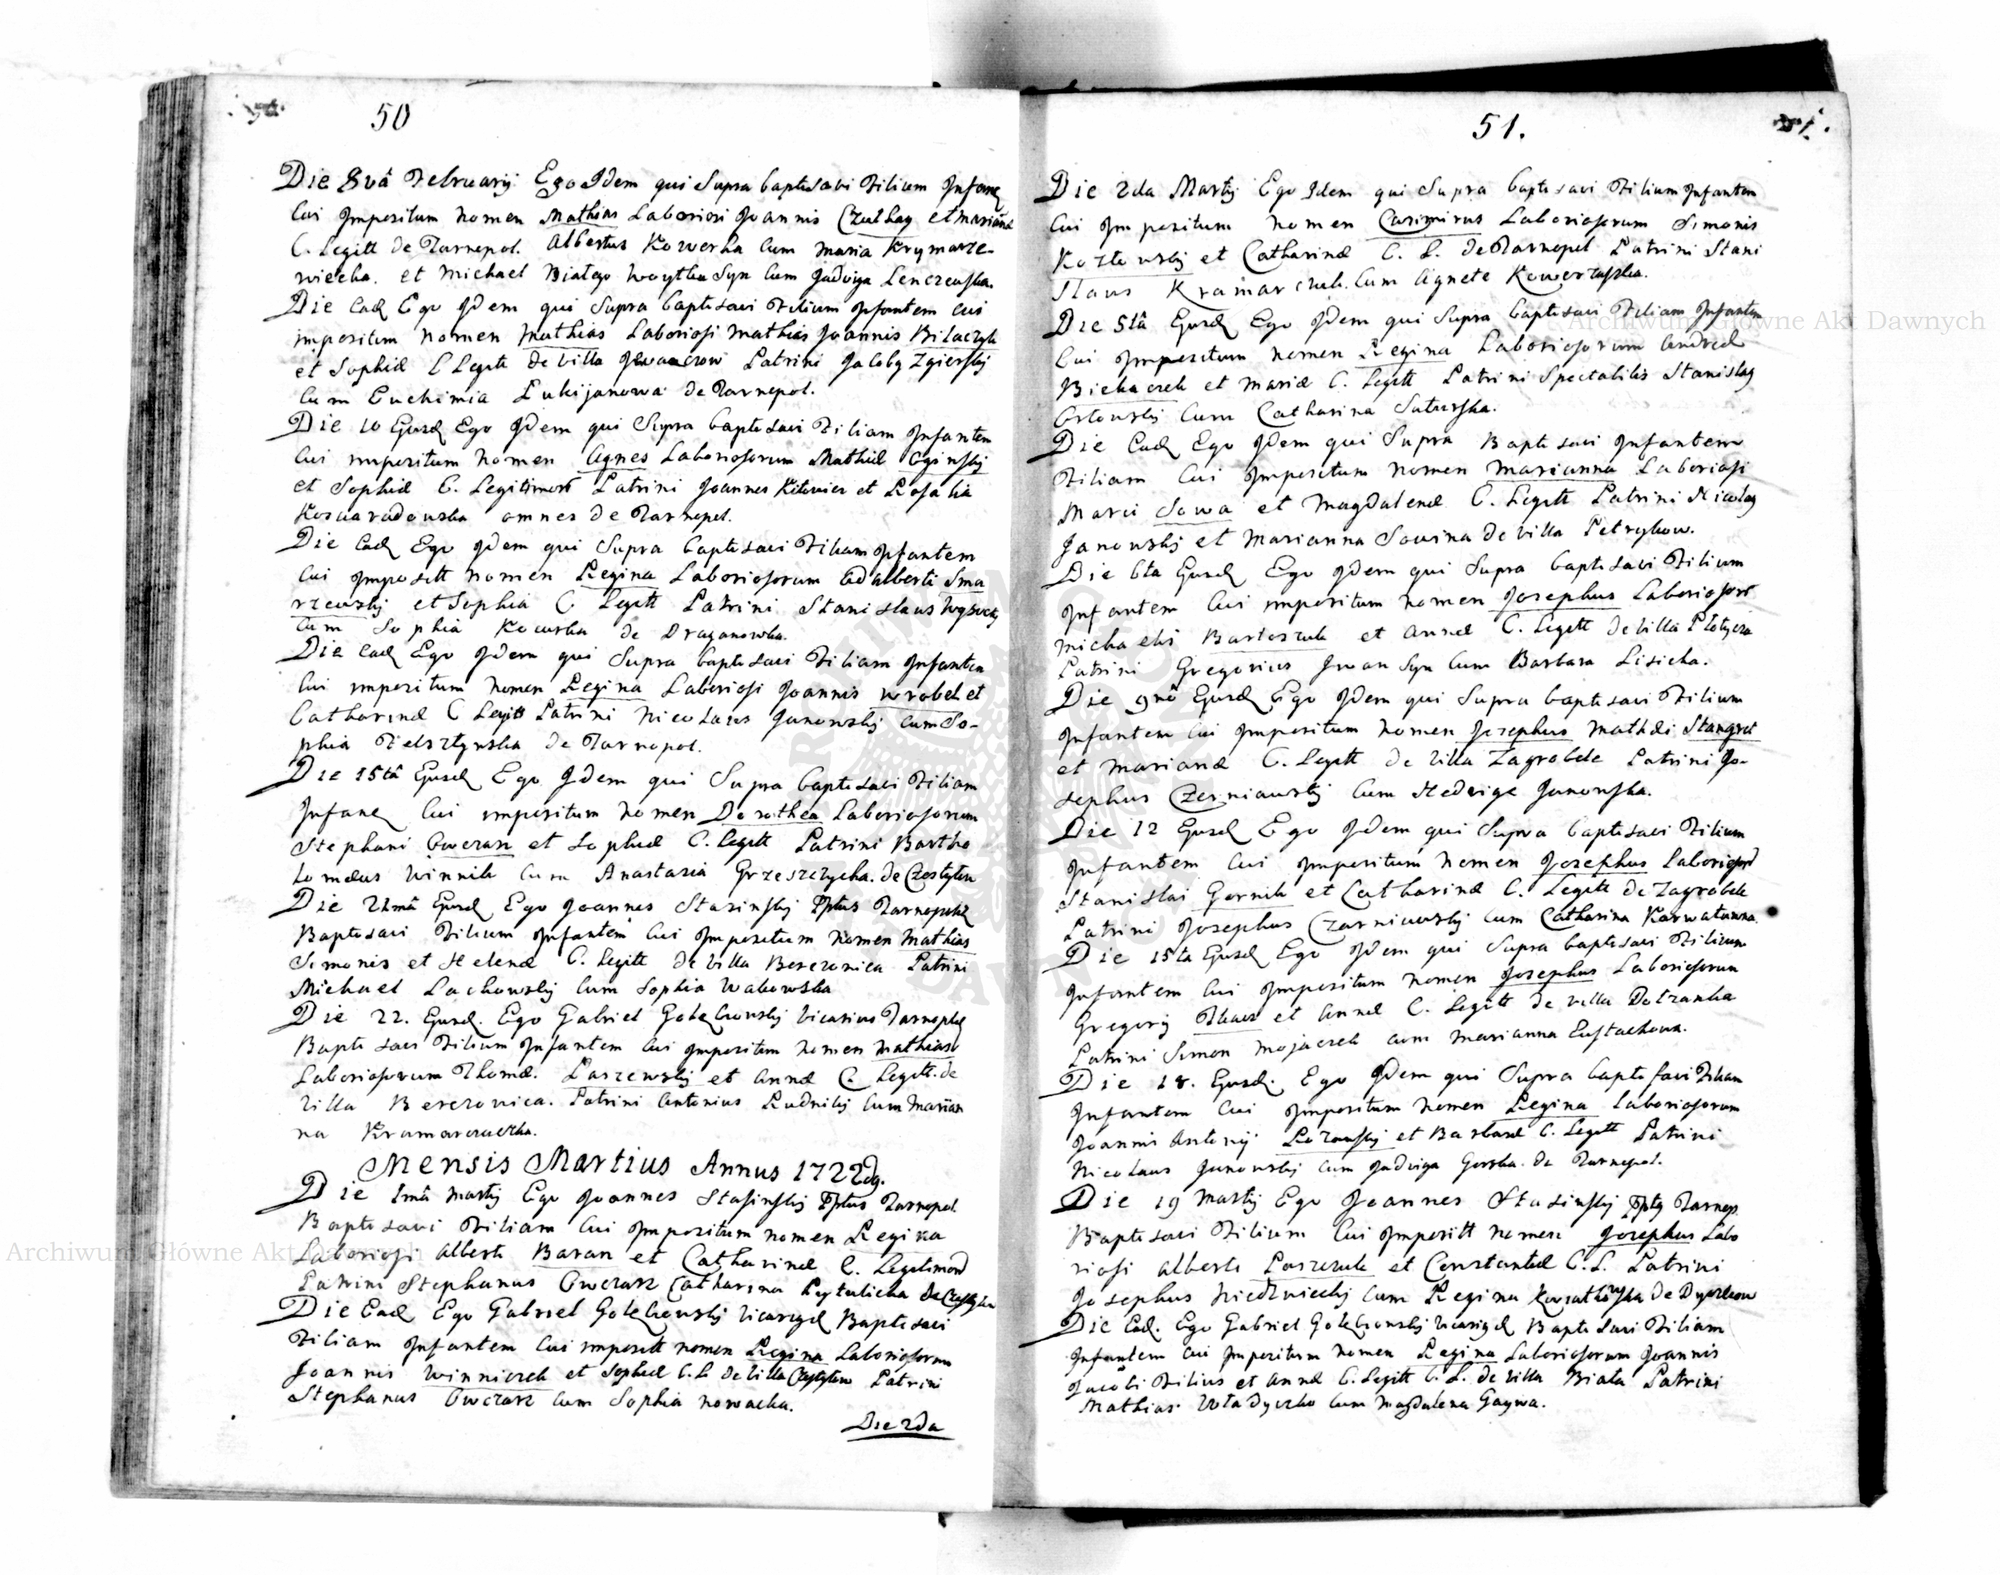 50
Die 8vâ Februarij Ego Idem qui Supra baptisavi Filium Infane
Cui Impositum Nomen Mathias Laboriosi Joannis Czuchay et Marianæ
C. Legitt de Tarnopol. Albertus Kowerka Cum Maria Krymarze-
wiecka. et Michael Białego Woytka Syn Cum Jadviga Lenczewska.
Die Ead Ego Idem qui Supra baptisavi Filium Infantem Cui
impositum Nomen Mathias Laboriosi Mathiæ Joannis Bilaczyk
et Sophiæ C Legitt de Villa Iwaczow Patrini Jacoby Zgierskij
Cum Euchimia Lukijanowa de Tarnopol.
Die 10 Ejusd Ego Idem qui Supra baptisavi Filiam Infantem
Cui impositum Nomen Agnes Laboriosorum Mathiæ Oginskij
et Sophiæ C. Legitimort Patrini Joannes Kitowicz et Rosalia
Kosiaradowska omnes de Tarnopol.
Die Ead Ego Idem qui Supra baptisavi Filiam Infantem
Cui Impositt Nomen Regina Laboriosorum Adalberti Sma
rzewskij et Sophia C Legitt Patrini Stanislaus Wysocky
Cum Sophia Kocurka de Draganowka.
Die Ead Ego Idem qui Supra baptisavi Filiam Infantem
Cui impositum Nomen Regina Laboriosi Joannis Wrobel et
Catharinæ C Legitt Patrini Nicolaus Janowskij Cum So-
phia Felsztynska de Tarnopol.
Die 15tâ Ejusd Ego Idem qui Supra baptisavi Filiam
Infane Cui impositum Nomen Dorothea Laboriosorum
Stephani Owczarz et Sophiæ C. Legitt Patrini Bartho
lomæus Winnik Cum Anastazia Grzeszczycha. de Czystylow
Die 21mâ Ejusd Ego Joannes Stasinskij Pptus Tarnopolê
Baptisavi Filium Infantem Cui Impositum Nomen Mathias
Simonis et Helenæ C. Legitt de Villa Berezovica Patrini
Michael Lachowskij Cum Sophia Wabowska
Die 22. Ejusd. Ego Gabriel Gołęchowskij Vicarius Tarnopolê
Baptisavi Filium Infantem Cui Impositum Nomen Mathias
Laboriosorum Thomæ. Laszewskij et Annæ C. Legitt. de
Villa Berezovica. Patrini Antonius Rudnikij Cum Marian
na Kramarczuczka.
Mensis Martius Annus 1722dg.
Die 1mâ Martij Ego Joannes Stasinskij Pptus Tarnopol.
Baptisavi Filiam Cui Impositum Nomen Regina
Laboriosi Alberti Baran et Catharinæ C. Legitimor
Patrini Stephanus Owczarz Catharina Pytulicha de Czystylow
Die Ead Ego Gabriel Gołęchowskij Vicarye Baptisavi
Filiam Infantem Cui impositt Nomen Regina Laboriosorum
Joannis Winniczek et Sophiæ C. L de Villa Czystylow Patrini
Stephanus Owczarz Cum Sophia Nowacka.
Die 2da
51.
Die 2da Martij Ego Idem qui Supra baptisavi Filium Infantem
Cui Impositum Nomen Casimirus Laboriosorum Simonis
Kozłowskij et Catharinæ C. L. de Tarnopol Patrini Stani
slaus Kramarczuk. Cum Agnete Kowerzuska.
Die 5tâ Ejusd Ego Idem qui Supra baptisavi Filiam Infantem
Cui Impositum Nomen Regina Laboriosorum Andreæ
Biekaczek et Mariæ C. Legitt Patrini Spectabilis Stanislay
Orłowskij Cum Catharina Saturska.
Die Ead Ego Idem qui Supra Baptisavi Infantem
Filiam Cui Impositum Nomen Marianna Laboriosi
Marci Sowa et Magdalenæ C. Legitt Patrini Nicolay
Janowskij et Marianna Sowina de Villa Petrykow.
Die 6ta Ejusd Ego Idem qui Supra baptisavi Filium
Infantem Cui impositum Nomen Josephus Laboriosort
Michaelis Bartoszuk et Annæ C. Legitt de Villa Płotycza
Patrini Gregorius Iwan Syn Cum Barbara Lisicka.
Die 9nâ Ejusd Ego Idem qui Supra baptisavi Filium
Infantem Cui Impositum Nomen Josephus Mathæi Stangret
et Marianæ C. Legitt de Villa Zagrobele Patrini Jo-
sephus Czerniawskij Cum Hedvige Janowska.
Die 12 Ejusd Ego Idem qui Supra baptisavi Filium
Infantem Cui Impositum Nomen Josephus Laboriosor
Stanislai Gornik et Catharinæ C. Legitt de Zagrobele
Patrini Josephus Czarniawskij Cum Catharina Karwatowna.
Die 15ta Ejusd Ego Idem qui Supra baptisavi Filium
Infantem Cui Impositum Nomen Josephus Laboriosorum
Gregorij Tkacz et Annæ C. Legitt de Villa Dołzanka
Patrini Simon Mojaczek cum Marianna Eustachowa.
Die 18. Ejusd. Ego Idem qui Supra baptisavi Filiam
Infantem Cui Impositum Nomen Regina Laboriosorum
Joannis Antonij Łozowskij et Barbaræ C. Legitt Patrini
Nicolaus Janowskij Cum Jadviga Gorska. de Tarnopol.
Die 19 Martij Ego Joannes Stasinskij Ppty Tarnop.
Baptisavi Filium Cui Impositt Nomen Josephus Labo
riosi Alberti Laszczuk et Constantiæ C. L. Patrini
Josephus Niedźwieckij Cum Regina Kwiatkowska de Dyczkow
Die Ead. Ego Gabriel Gołęchowskij Vicarye Baptisavi Filiam
Infantem Cui Impositum Nomen Regina Laboriosorum Joannis
Jacobi Filius et Annæ C. Legitt C. L. de Villa Biała Patrini
Mathias Władyczko Cum Magdalena Gaywa.
Archiwum Główne Akt Dawnych
Archiwum Główne Akt Dawnych